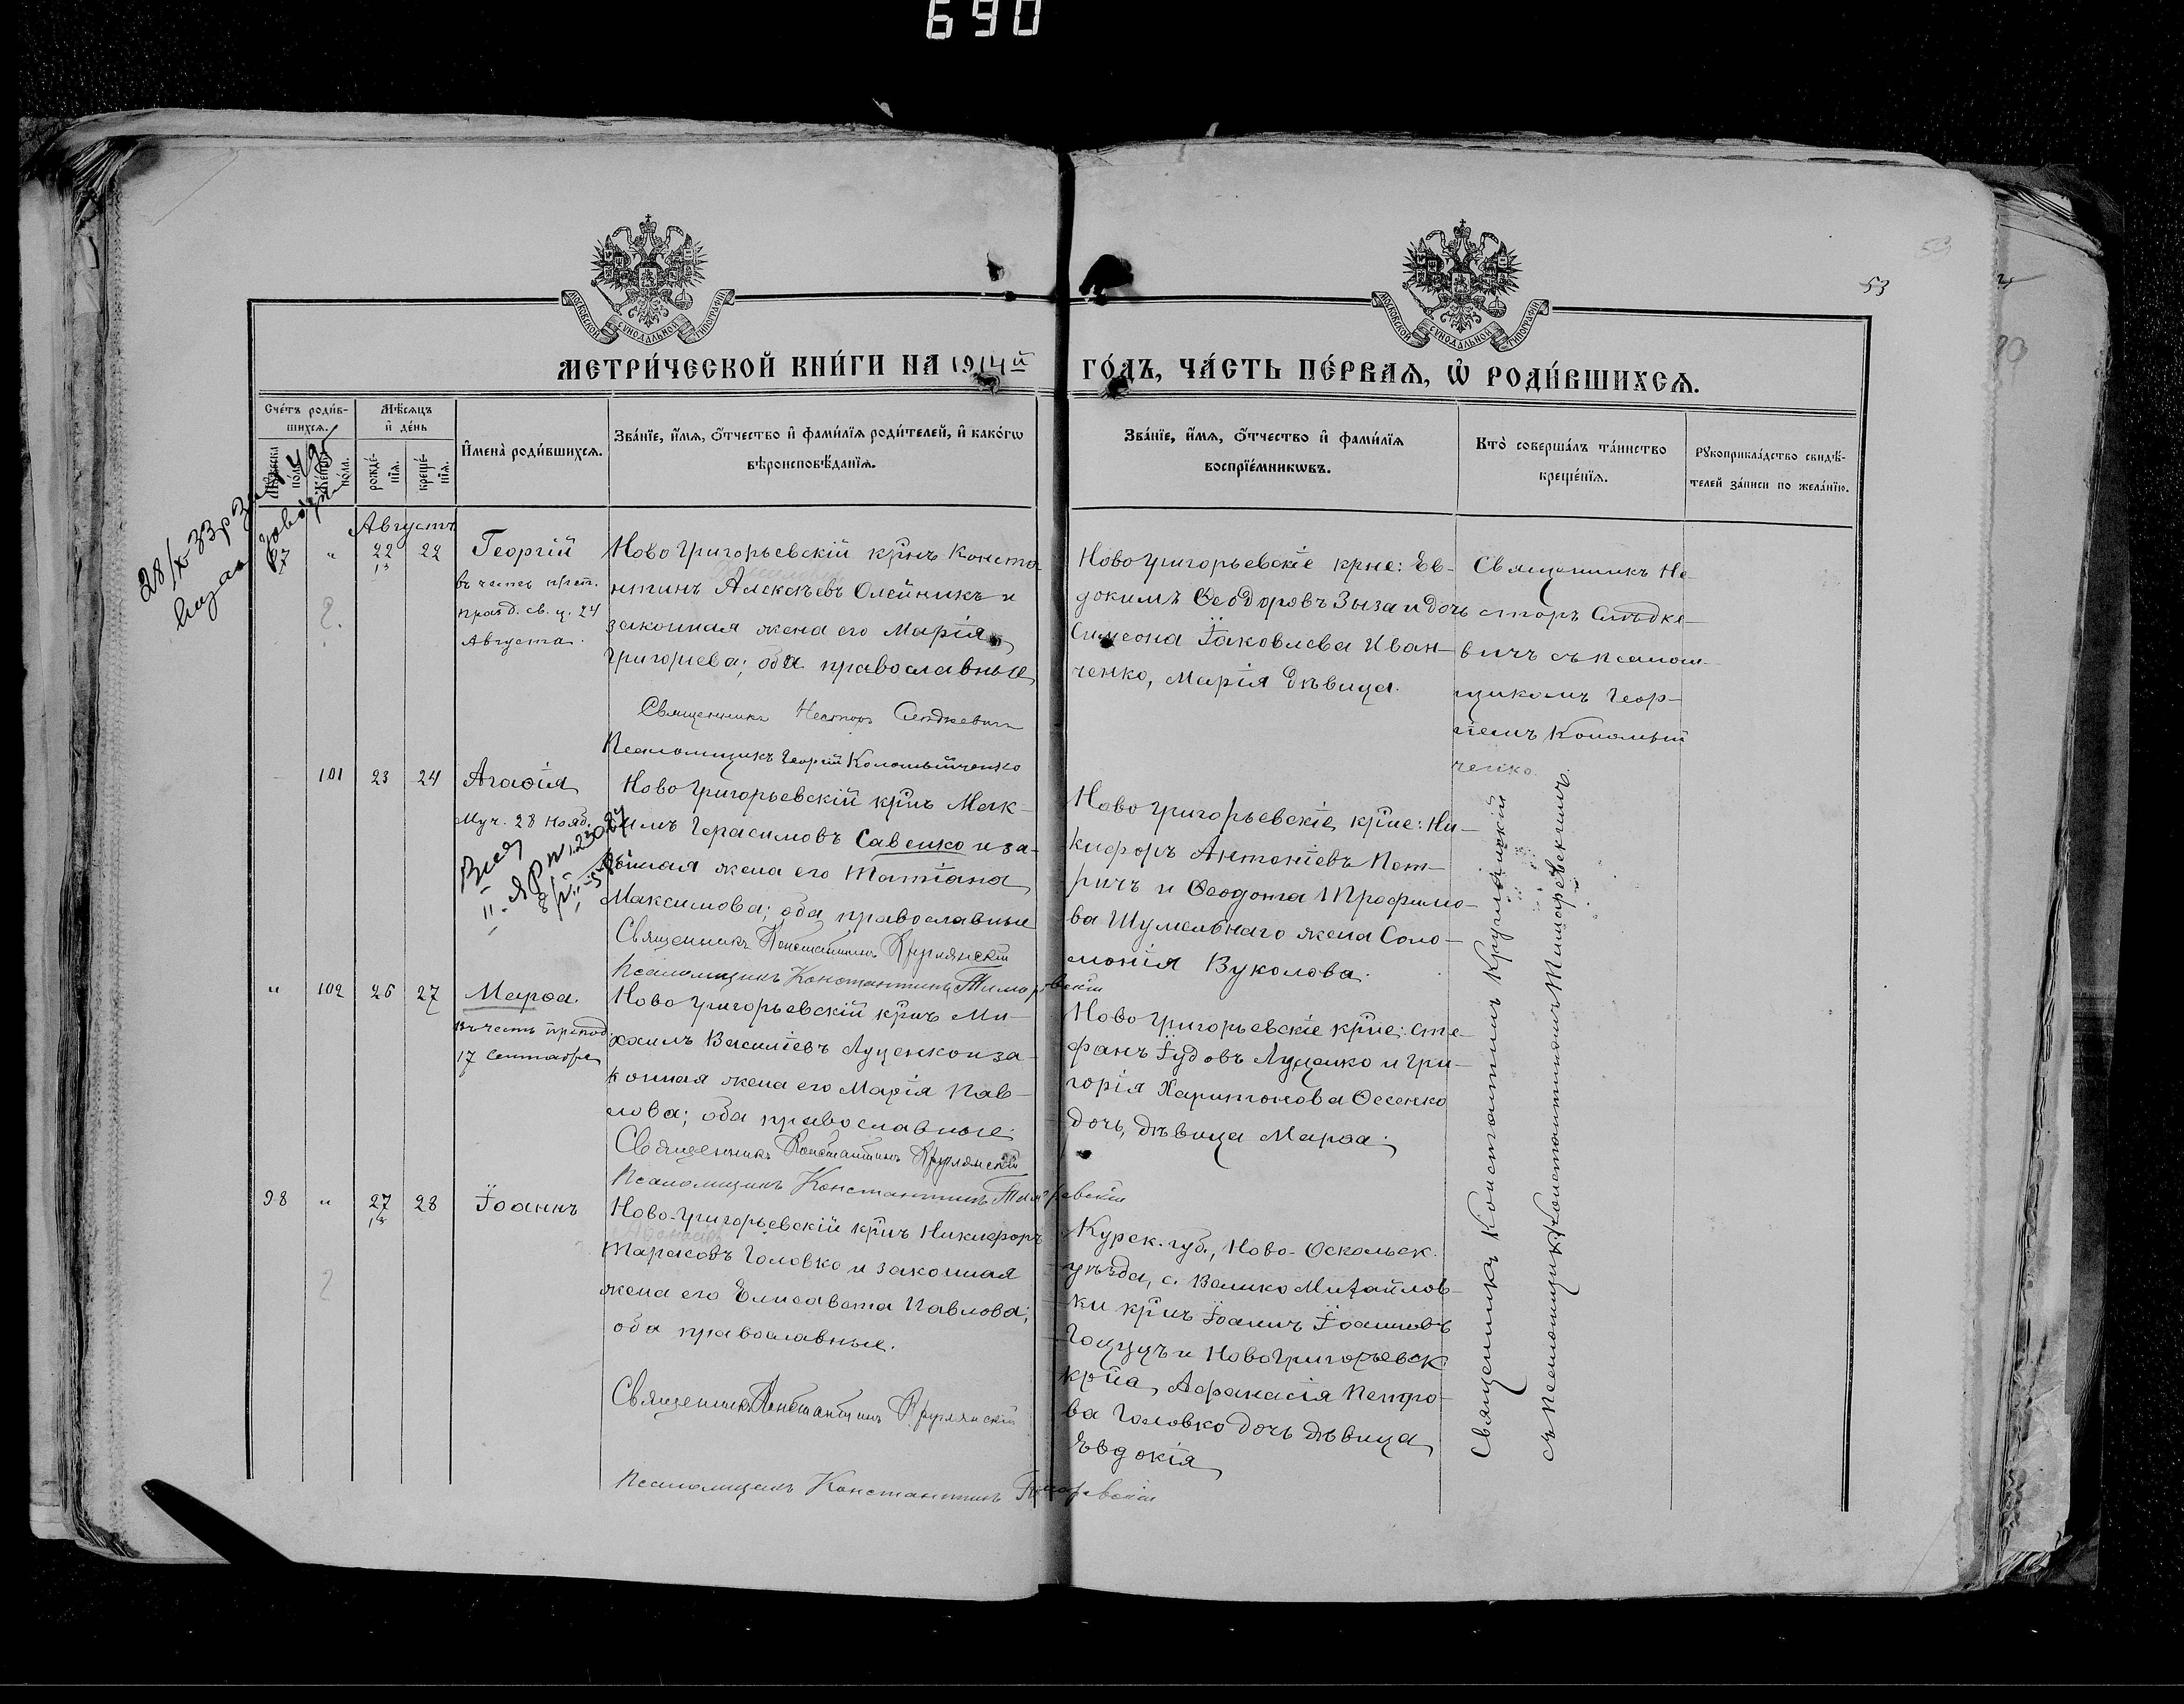 690
53
53
МОСКОВСКОЙ СѴНОДАЛЬНОЙ ТИПОГРАФІИ
МОСКОВСКОЙ СѴНОДАЛЬНОЙ ТИПОГРАФІИ
МЕТРИ́ЧЕСКОЙ КНИ́ГИ НА 1914й ГО́ДЪ, ЧА́СТЬ ПЕ́РВАѦ, Ѡ҆ РОДИ́ВШИХСѦ.
Сче́тъ роди́в-
шихсѧ.
Мѣ́сѧцъ
и҆ де́нь
Мꙋ́жеска
по́ла.
Же́нска
по́ла.
рожде́-
нїѧ.
креще́-
нїѧ.
И҆мена̀ роди́вшихсѧ.
Зва́нїе, и҆́мѧ, ѻ҆́тчество и҆ фами́лїѧ роди́телей, и҆ како́гѡ
вѣроисповѣ́данїѧ.
Зва́нїе, и҆́мѧ, ѻ҆́тчество и҆ фами́лїѧ
воспрїе́мникѡвъ.
Кто̀ соверша́лъ та́инство
креще́нїѧ.
Рꙋкоприкла́дство свидѣ́-
телей за́писи по жела́нїю.
28/X 33 р
Августъ
97 " 22 22 Георгій
13
въ честь
празд. св. ц. 24
Августа.
Ново Григорьевскій крнъ Конста
нтинъ Алексѣевъ Олейникъ и
законная жена его Марія
Григориева; оба православные
Священникъ Несторъ
Псаломщикъ Георгій Коломыйченко
Ново Григорьевскіе крне: Ев-
докимъ Ѳеодоровъ Зыза и дочь
Симеона Іаковлева Иван-
ченко, Марія дѣвица.
Священникъ Не-
сторъ
вичъ съ псалом-
щикомъ Геор-
гіемъ Коломый
ченко.
101 23 24 Агаѳія
Муч. 28 Нояб.
Ново Григорьевскій крнъ Мак-
симъ Герасимовъ Савенко и за-
конная жена его Татіана
Максимова; оба православные
Священникъ Константинъ Круглянскій
Псаломщикъ Константинъ Тимаревскій
Ново Григорьевскіе крне: Ни-
кифоръ Антоніевъ Пет-
ричъ и Ѳеодота Трофимо-
ва Шумейнаго жена Соло-
монія Вуколова.
" 102 26 27 Марѳа.
Въ честь препод.
17 Сентября
Ново Григорьевскій крнъ Ми-
хаилъ Василіевъ Луценко и за-
конная жена его Марія Пав-
лова; оба православные.
Священникъ Константинъ Круглянскій
Псаломщикъ Константинъ Тимаревскій
Ново Григорьевскіе крне: Сте-
фанъ Іудовъ Луценко и Гри-
горія Харитонова Ѳесенко
дочь, дѣвица Марѳа.
98 " 27 28 Іоаннъ
Ново-Григорьевскій крнъ Никифоръ
Тарасовъ Головко и законная
жена его Елисавета Павлова;
оба православные.
Священникъ Константинъ Круглянскій
Псаломщикъ Константинъ Тимаревскій
Курск. губ., Ново-Оскольск.
уѣзда, с. Велико Михайлов-
ки крнъ Іоаннъ Іоанновъ
и Ново Григорьевск
крна Афанасія Петро-
ва Головко дочь дѣвица
Евдокія
Священникъ Константинъ Круглянскій
съ Псаломщикомъ Константиномъ Тимаревскимъ.